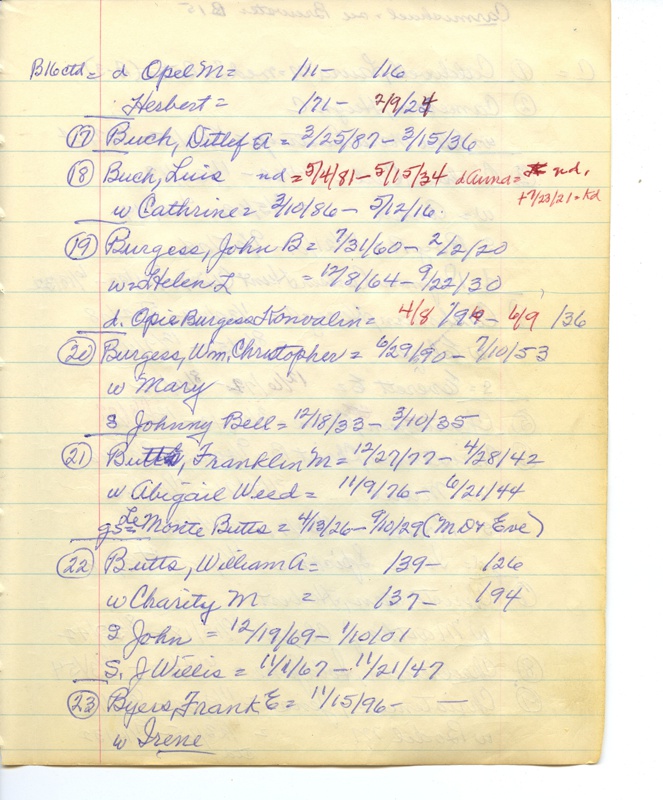 B16ctd= d Opel M= /11- /16
Herbert= /71- 2/9/24
(17) Buch, Detlef A = 3/25/87-3/15/36
(18) Buch, Luis nd = 5/4/81-5/15/34 d Anna= nd,
+7/23/21=Kd
w Cathrine= 3/10/86- 5/12/16.
(19) Burgess, John B= 7/31/60- 2/2/20
w=Helen L = 12/8/64-9/22/30
d. Opie Burgess Konvalin= 4/8 /99- 6/9 /36
(20) Burgess, Wm. Christopher = 6/29/90- 7/10/53
w Mary
s Johnny Bell=12/18/33-3/10/35
(21) Butts, Franklin M=12/27/77- 4/28/42
w Abigail Weed= 11/9/76- 6/21/44
gs= Le Monte Butts = 4/13/26-9/10/29(M Dr Eve)
(22) Butts, William A= /39- /26
w Charity M = /37- /94
S John = 12/19/69- 1/10/01
S. J Willis= 11/1/67-11/21/47
(23) Byers, Frank E= 11/15/96- —
w Irene